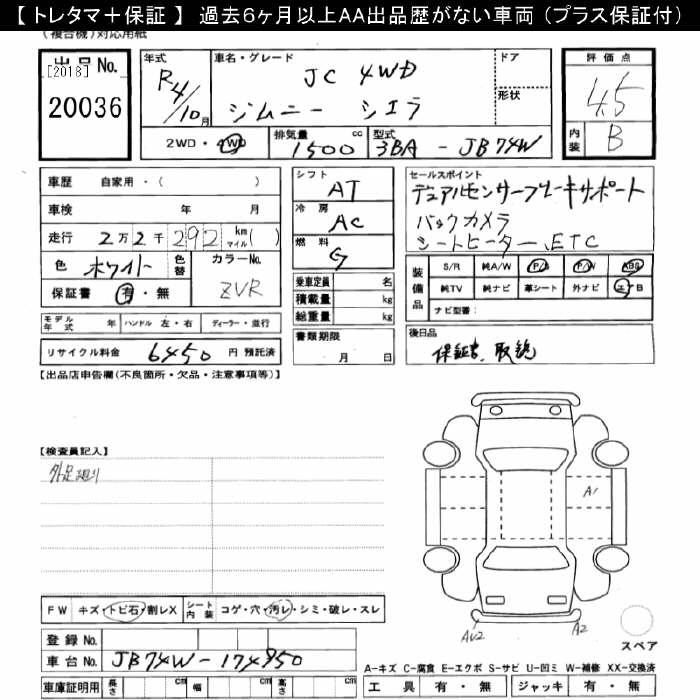 【 トレタマ＋保証 】 過去６ヶ月以上ＡＡ出品歴がない車両（プラス保証付）
（複合機）対応用紙
出品No.
[2018]
20036
年式
R4/10月
車名・グレード
JC 4WD
ジムニー シエラ
ドア
形状
評価点
4.5
内装
B
2WD・4WD
排気量
1500cc
型式
3BA - JB74W
車歴 自家用・（ ）
車検 年 月
走行 2万2千292 km マイル( )
色 ホワイト 色替
カラーNo.
ZVR
保証書 有・無
モデル年式 年 ハンドル 左・右 ディーラー・並行
リサイクル料金 6450 円 預託済
シフト
AT
冷房
AC
燃料
G
乗車定員 名
積載量 kg
総重量 kg
書類期限
月 日
セールスポイント
デュアルセンサーブレーキサポート
バックカメラ
シートヒーター、ETC
装備品
S/R 純A/W P/S P/W ABS
純TV 純ナビ 革シート 外ナビ エアB
ナビ型番：
後日品
保証書、取説
【出品店申告欄(不良箇所・欠品・注意事項等)】
【検査員記入】
外足廻り
A1
AU2
A2
スペア
FW キズ・トビ石・割レX
シート内装 コゲ・穴・汚レ・シミ・破レ・スレ
登録No.
車台No. JB74W-174950
車庫証明用 長さ cm 幅 cm 高さ cm
A－キズ C－腐食 E－エクボ S－サビ U－凹ミ W－補修 XX－交換済
工具 有・無 ジャッキ 有・無